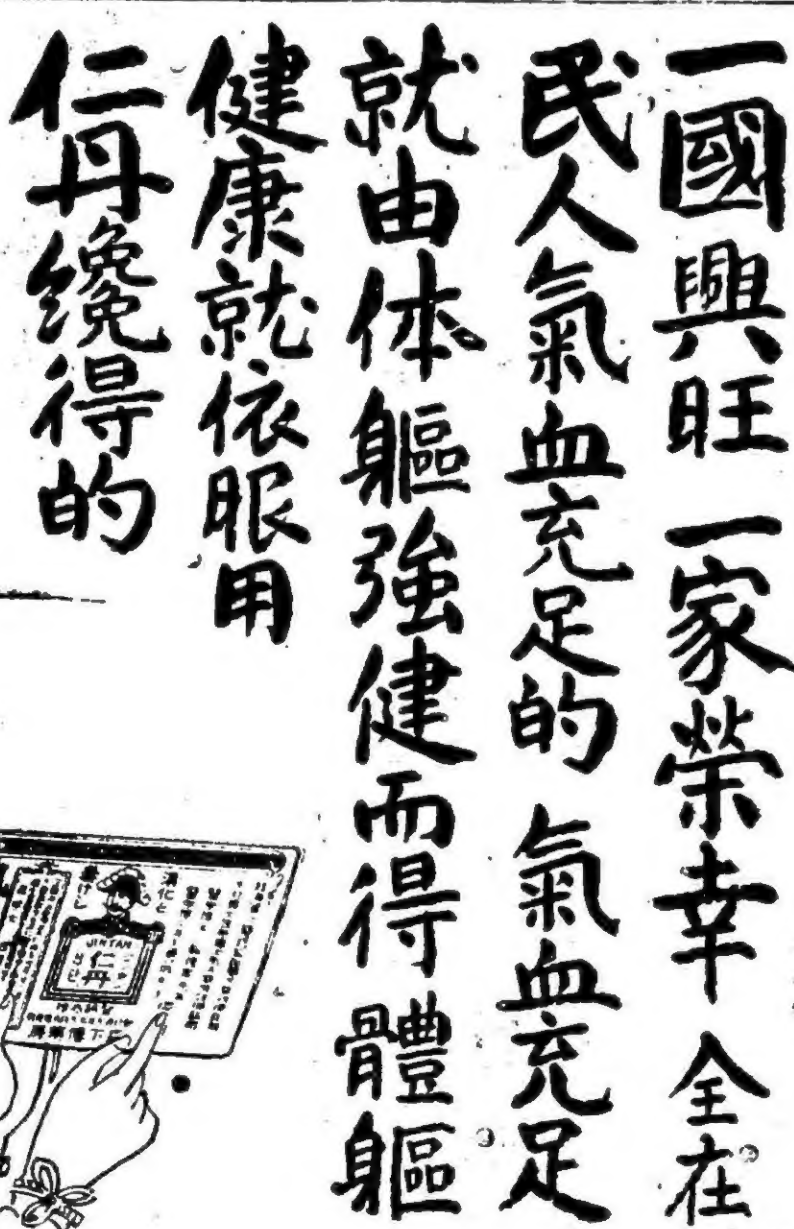 一國興旺 一家榮幸 全在
民人氣血充足的 氣血充足
就由体軀強健而得 體軀
健康就依眼用
仁丹纔得的
JINTAN
仁丹